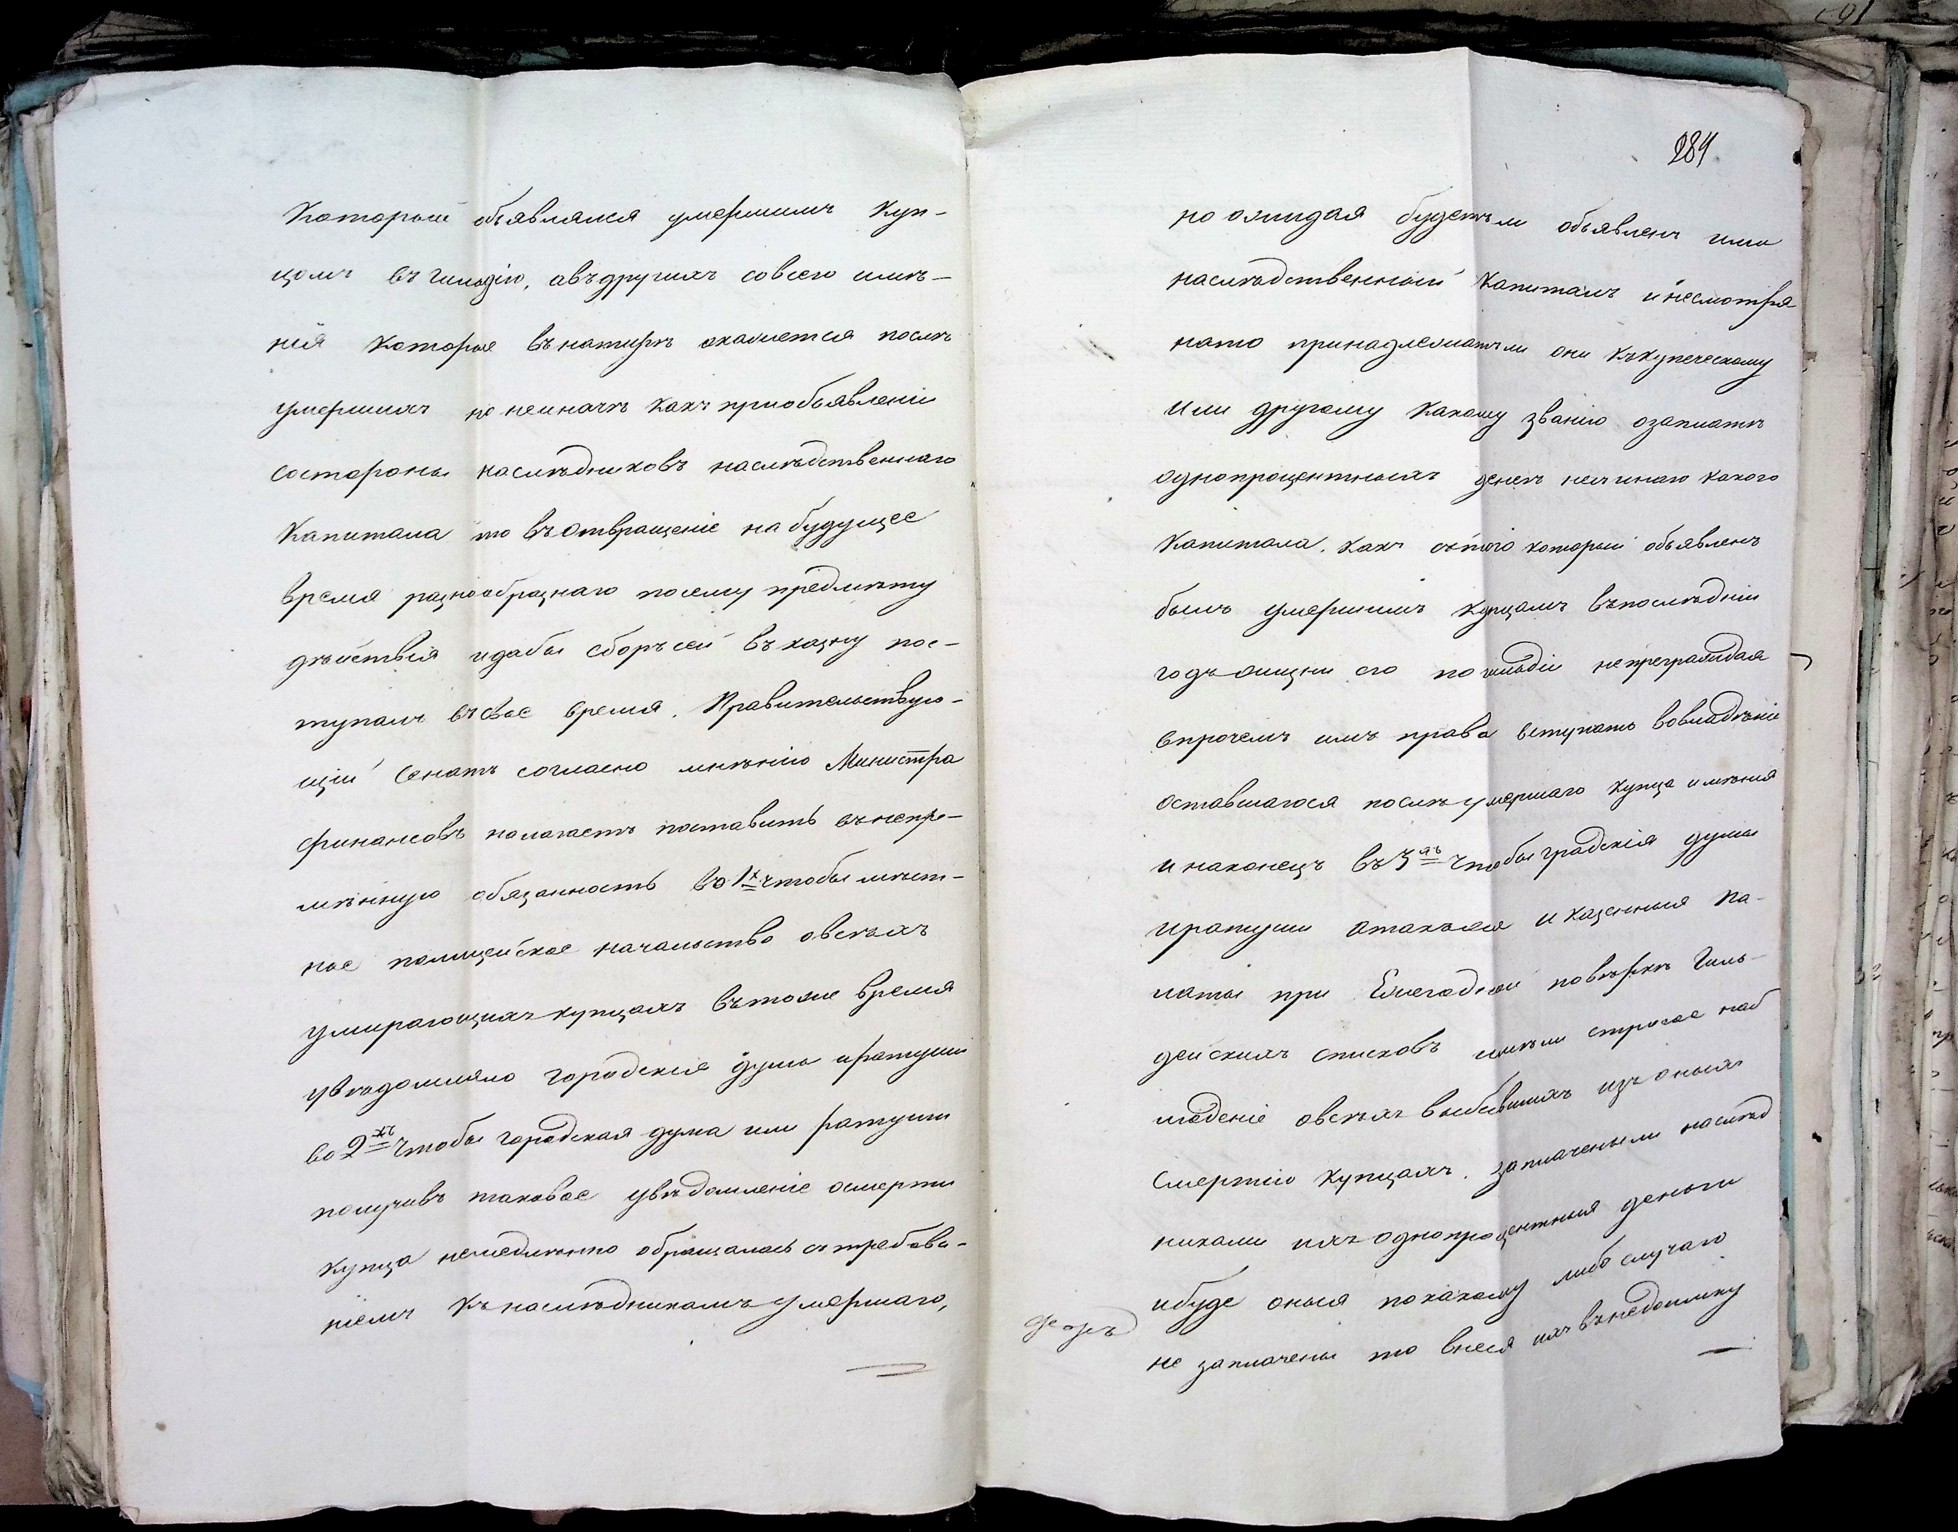 Который объявлялся умершимъ Куп-
цомъ въ гильдію, авъдругихъ совсего имѣ-
нія Которое вънатурѣ окажется послѣ
умершихъ не неиначѣ какъ приобъявленіи
состороны наслѣдниковъ наслѣдственнаго
Капитала то въ отвращеніе на будущее
время разнообразнаго посему предмѣту
дѣйствія идабы сборъ сей въ казну пос-
тупалъ въ свое время. Правительствую-
щій Сенатъ согласно мнѣнію Министра
финансовъ полагаетъ поставить внепре-
мѣнную обязанность во 1х чтобы мѣст-
ное полицейское начальство овсѣхъ
умирающихъ купцахъ вътоже время
увѣдомляло городскія думы иратуши
во 2хъ чтобы городская дума или ратуши
получивъ таковое увѣдомленіе осмерти
купца немедлѣнно обращалась стребова-
ніемъ къ наслѣдникамъ умершаго,
284
но ожидая будетъ ли объявленъ ими
наслѣдственный Капиталъ и несмотря
нато принадлежатъ ли они къкупеческому
или другому какому званію озаплатѣ
однопроцентныхъ денегъ несчинаго какого
Капитала. какъ стого который объявленъ
былъ умершимъ купцомъ въпослѣдній
годъ жизни его по гильдіи непреграждая
впрочемъ имъ права вступать вовладѣніе
оставшагося послѣ умершаго купца имѣнія
и наконецъ въ 3хъ чтобы градскія думы
иратуши атакъже и казенныя па-
латы при Ежегодной повѣркѣ Гиль-
дейскихъ списковъ имѣли строгое наб
люденіе овсѣхъ выбывшихъ изъ оныхъ
Смертію купцахъ. заплаченыли наслѣд
никами ихъ однопроцентныя деньги
ибуде оныя покакому либо случаю
не заплачены то внеся ихъ внедоимку